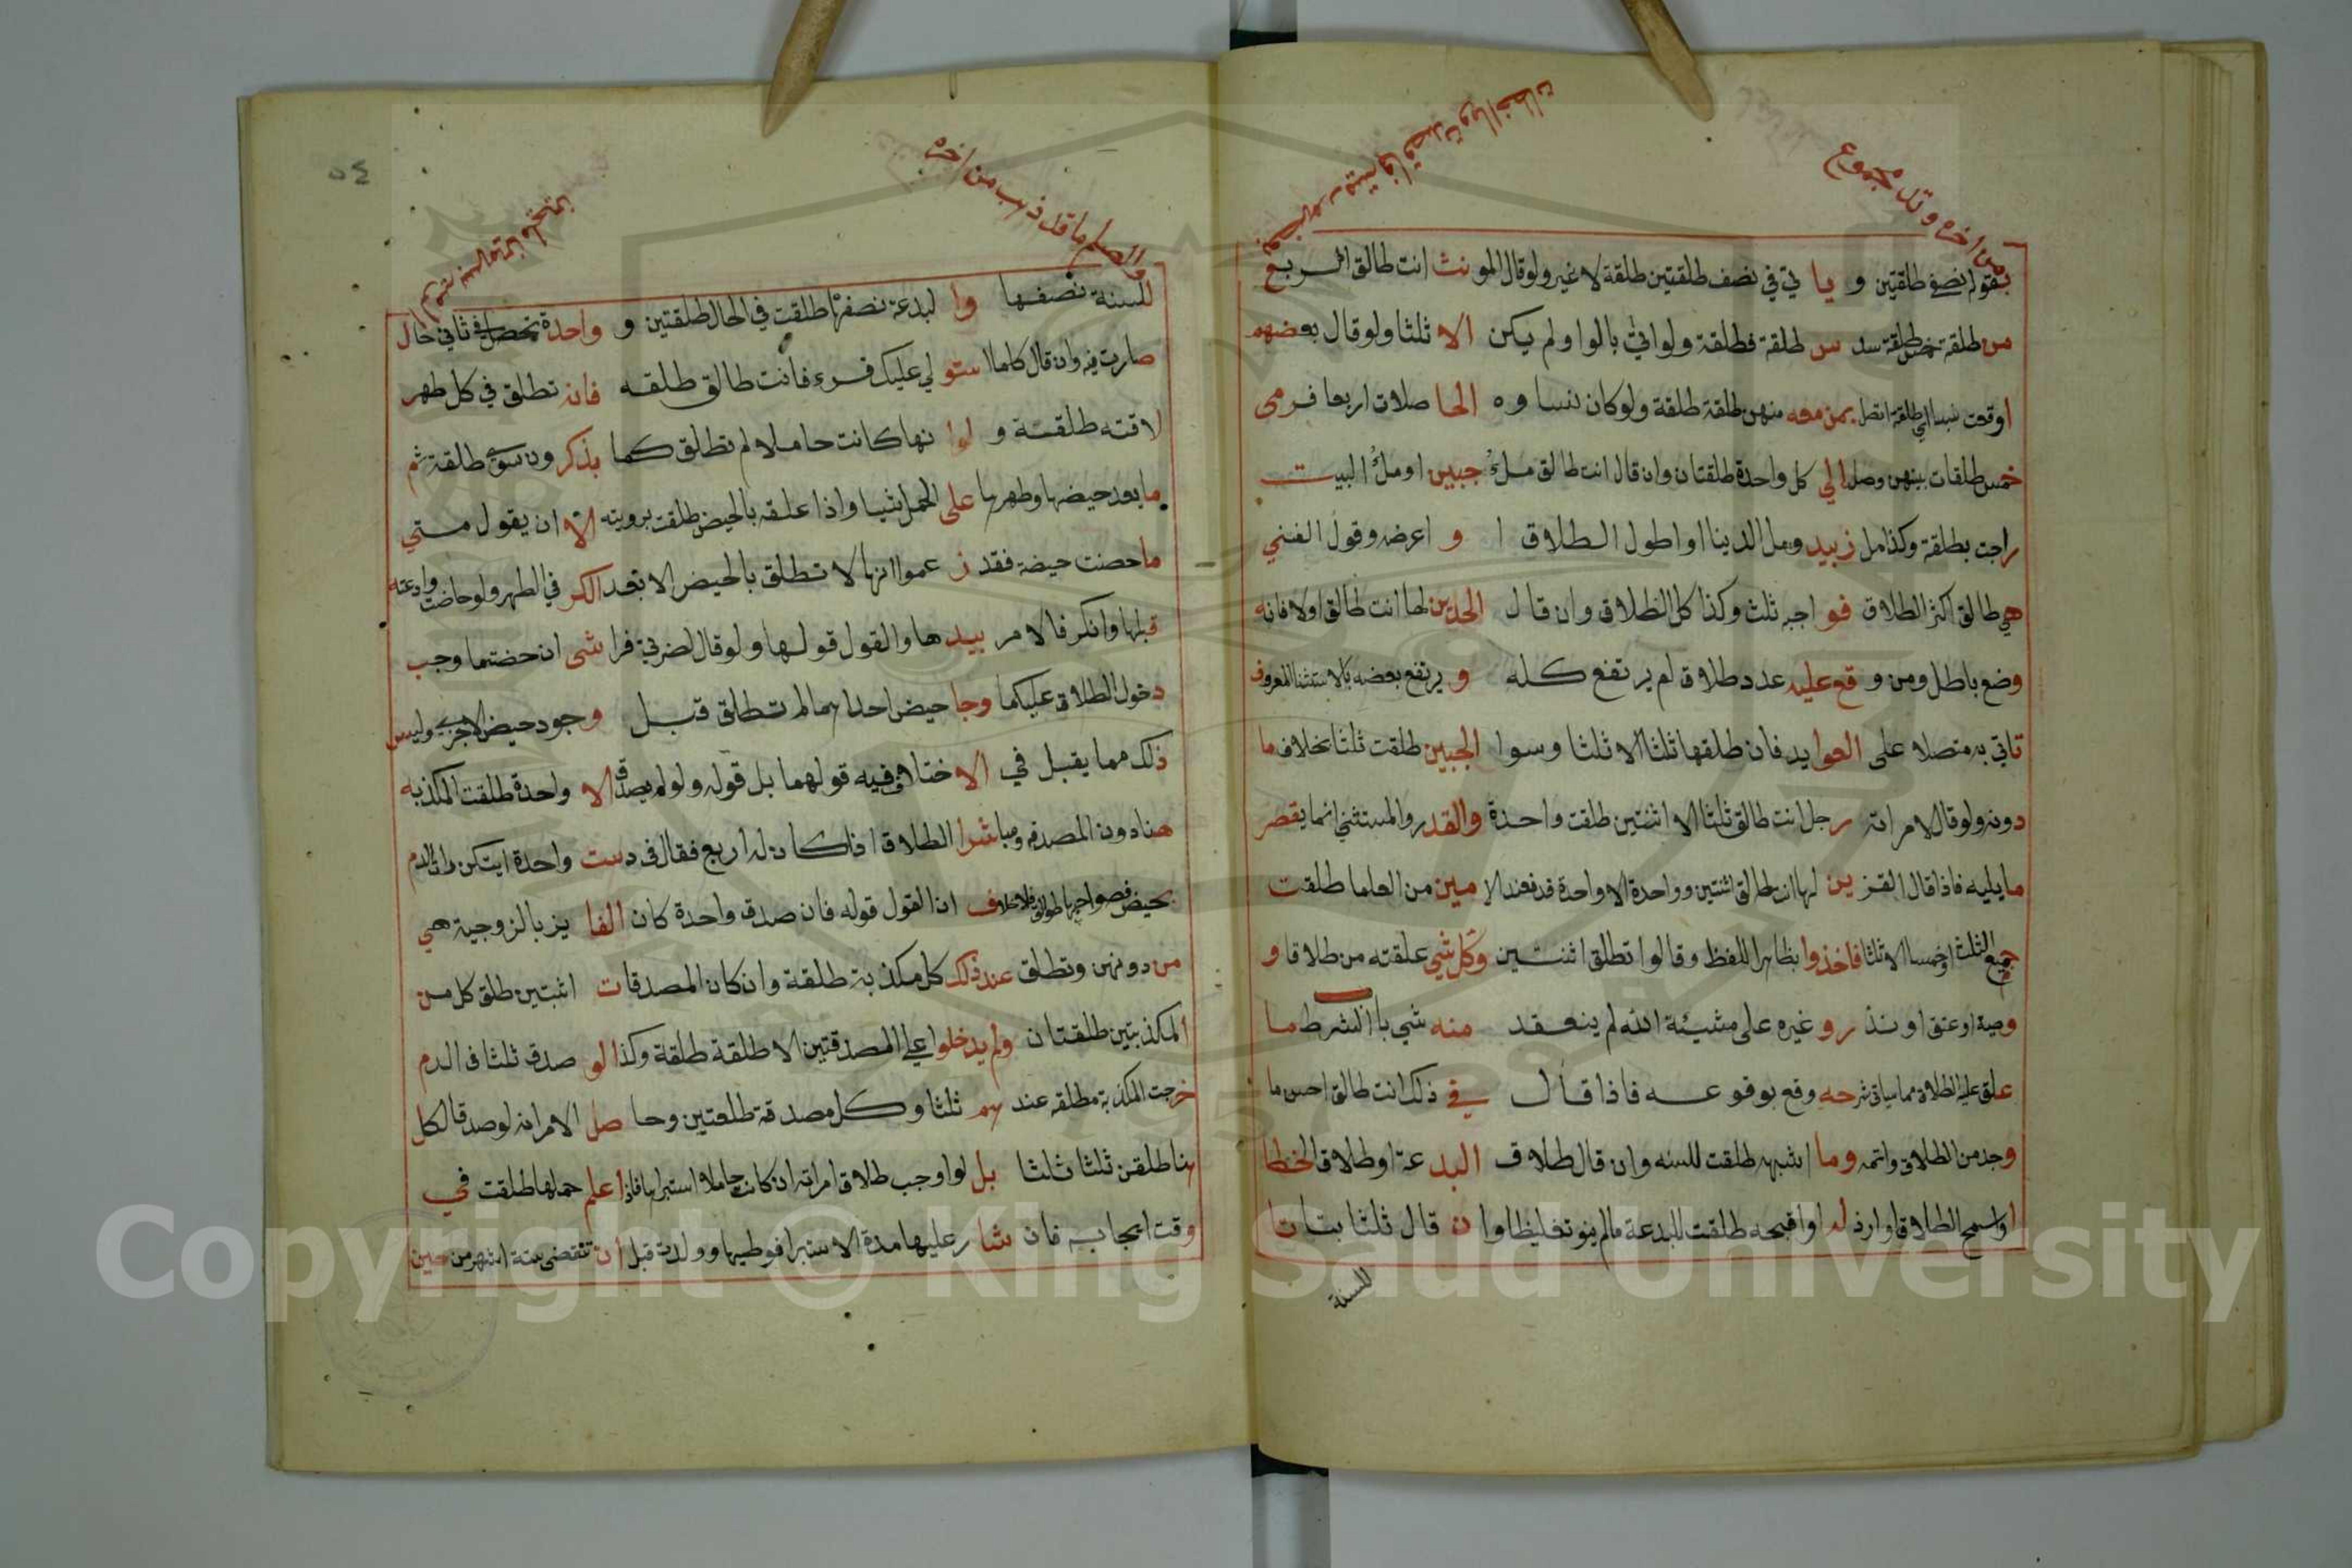 من اخره وتل مجموع
بقوله نصفي طلقتين و يا تي في نصف طلقتين طلقة لا غير ولو قال المو نث انت طالق الربع
من طلقة خمس طلقة سد س طلقة فطلقة ولو اتي بالوا ولم يكن الا ثلثا ولو قال بعضهم
اوقعت طلقة اتصل بمن معه منهن طلقة طلقة ولو كان نساوه الحا صلات اربعا فرمى
خمس طلقات بينهن وصل الي كل واحدة طلقتان وان قال انت طالق ملء جبين او ملء البيت
راجت بطلقة وكذا مل زبيد ومل الدينا او اطول الطلاق ا و اعرضه وقول الغني
هي طالق اكثر الطلاق فو اجبه ثلث وكذا كل الطلاق وان قال الحدين لها انت طالق اولا فانه
وضع باطل ومن و قع عليه عدد طلاق لم يرتفع كله و يرتفع بعضه بالاستثنا المعروف
تاتي به متصلا على العوايد فان طلقها ثلثا الا ثلثا وسوا الجبين طلقت ثلثا بخلاف ما
دونه ولو قال لامراته رجل انت طالق ثلثا الا اثنتين طلقت واحدة والقدر والمستثني انما يقصر
ما يليه فاذا قال القز ين لها انت طالق اثنتين وواحدة الا واحدة قد فعند الا مين من العلما طلقت
جميع الثلث او خمسا الا ثلثا فاخذوا بظاهر اللفظ وقالوا تطلق اثنتين وكل شي علقته من طلاق او
وصية او عتق او نذ رو غيره على مشيئة الله لم ينعقد منه شي با الشرط ما
علق عليه الطلاق مما سياتي شرحه وقع بوقوعه فاذا قال في ذلك انت طالق احسن ما
وجد من الطلاق واتمه وما اشبهه طلقت للسنه وان قال طلاق البد عة او طلاق الخطا
او اسمج الطلاق او ارذ له او اقبحه طلقت للبدعة ما لم ينو تغليظا وا ن قال ثلثا بتا تا
للسنة
والصلم ما قل ذهب من اخره
٥٤
للسنة نصفها وا لبدعة نصفها طلقت في الحال طلقتين و واحدة تحصل في ثاني حال
صارت فيه وان قال كلما ا ستو لي عليك قرء فانت طالق طلقه فانه تطلق في كل طهر
لاقته طلقة و لوا نها كانت حاملا لم تطلق كما يذكر ون سوى طلقة ثم
ما بعد حيضها وطهرها على الحمل شيا واذا علقه بالحيض طلقت برويته الا ان يقول متي
ما حضت حيضة فقد ز عموا انها لا تطلق بالحيض الا بعد الكر في الطهر ولو حاضت وادعته
قبلها وانكر فالامر بيد ها والقول قولها ولو قال لضرتي فرا شى ان حضتما وجب
دخول الطلاق عليكما وجا حيض احداهما لم تطلق قبل و جود حيض الاخرى وليس
ذلك مما يقبل في الا ختلاف فيه قولهما بل قوله ولو لم يصدق الا واحدة طلقت المكذبه
هنا دون المصدقه ومبا شرا الطلاق اذا كان له اربع فقال في دست واحدة ايتكن راى الدم
بحيض فصواحبها طوالق فلا خلاف ان القول قوله فان صدق واحدة كان الفا يز بالزوجية هي
من دونهن وتطلق عند ذلك كل مكذبة طلقة وان كان المصدقات اثنتين طلق كل من
المكذبتين طلقتان ولم يدخلوا على المصدقتين الا طلقة طلقة وكذا لو صدق ثلثا في الدم
خرجت المكذبة مطلقه عند هم ثلثا وكل مصدقة طلقتين وحا صل الامر انه لو صدق الكل
هنا طلقن ثلثا ثلثا بل لو اوجب طلاق امراته ان كانت حاملا استبراها فاذا علم حملها طلقت في
وقت ايجابه فان شا ر عليها مدة الاستبرا فوطيها وولدت قبل ان تنقضى ستة اشهر من حين